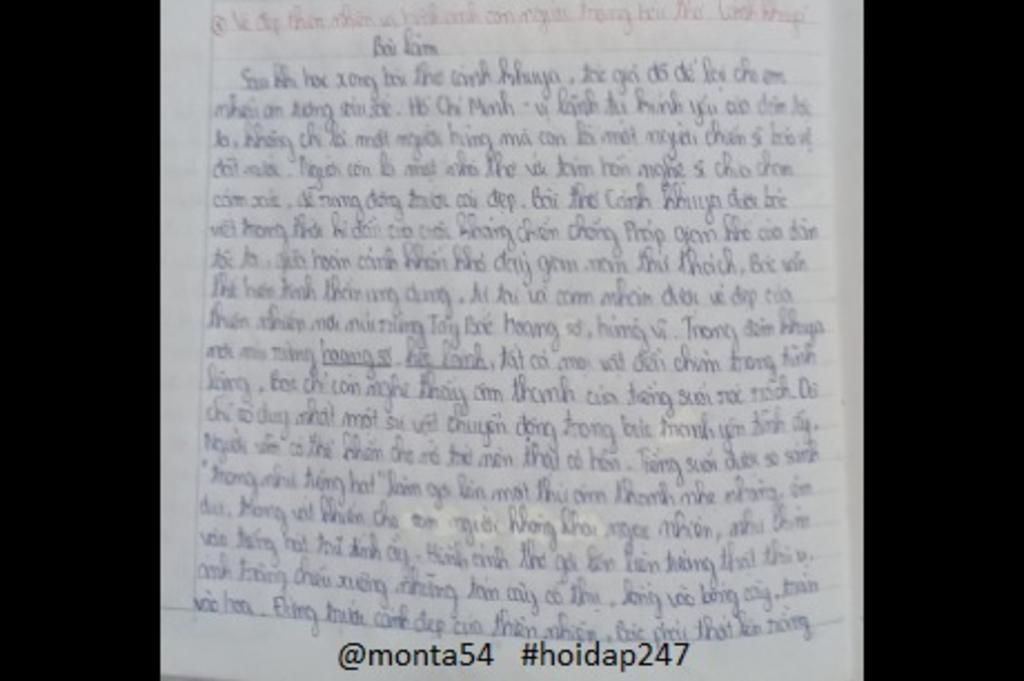 Vẻ đẹp thiên nhiên và hình ảnh con người trong bài thơ Cảnh khuya
Bài làm
Sau khi học xong bài thơ cảnh khuya, tác giả đã để lại cho em
nhiều ấn tượng sâu sắc. Hồ Chí Minh - vị lãnh tụ kính yêu của dân tộc
ta, không chỉ là một người hùng mà còn là một người chiến sĩ bảo vệ
đất nước. Người còn là một nhà thơ với tâm hồn nghệ sĩ chứa chan
cảm xúc, dễ rung động trước cái đẹp. Bài thơ Cảnh khuya được bác
viết trong thời kì đầu của cuộc kháng chiến chống Pháp gian khổ của dân
tộc ta, giữa hoàn cảnh khốn khó đầy gian nan thử thách, Bác vẫn
thể hiện tinh thần ung dung, tự tại và cảm nhận được vẻ đẹp của
thiên nhiên nơi núi rừng Tây Bắc hoang sơ, hùng vĩ. Trong đêm khuya
nơi núi rừng hoang sơ, lạnh, tất cả mọi vật đều chìm trong tĩnh
lặng, Bác chỉ còn nghe thấy âm thanh của tiếng suối róc rách. Dù
chỉ có duy nhất một sự vật chuyển động trong bức tranh yên tĩnh ấy.
Người vẫn có thể khiến cho nó trở nên thật có hồn. Tiếng suối được so sánh
"trong như tiếng hát" làm gợi lên một thứ âm thanh nhẹ nhàng, êm
dịu, trong vắt khiến cho con người không khỏi ngạc nhiên, như chìm
vào tiếng hát trữ tình ấy. Hình ảnh thơ gợi lên liên tưởng thật thú vị.
ánh trăng chiếu xuống những tán cây cổ thụ, lồng vào bóng cây, tràn
vào hoa. Đứng trước cảnh đẹp của thiên nhiên, Bác phải thốt lên rằng
@monta54 #hoidap247